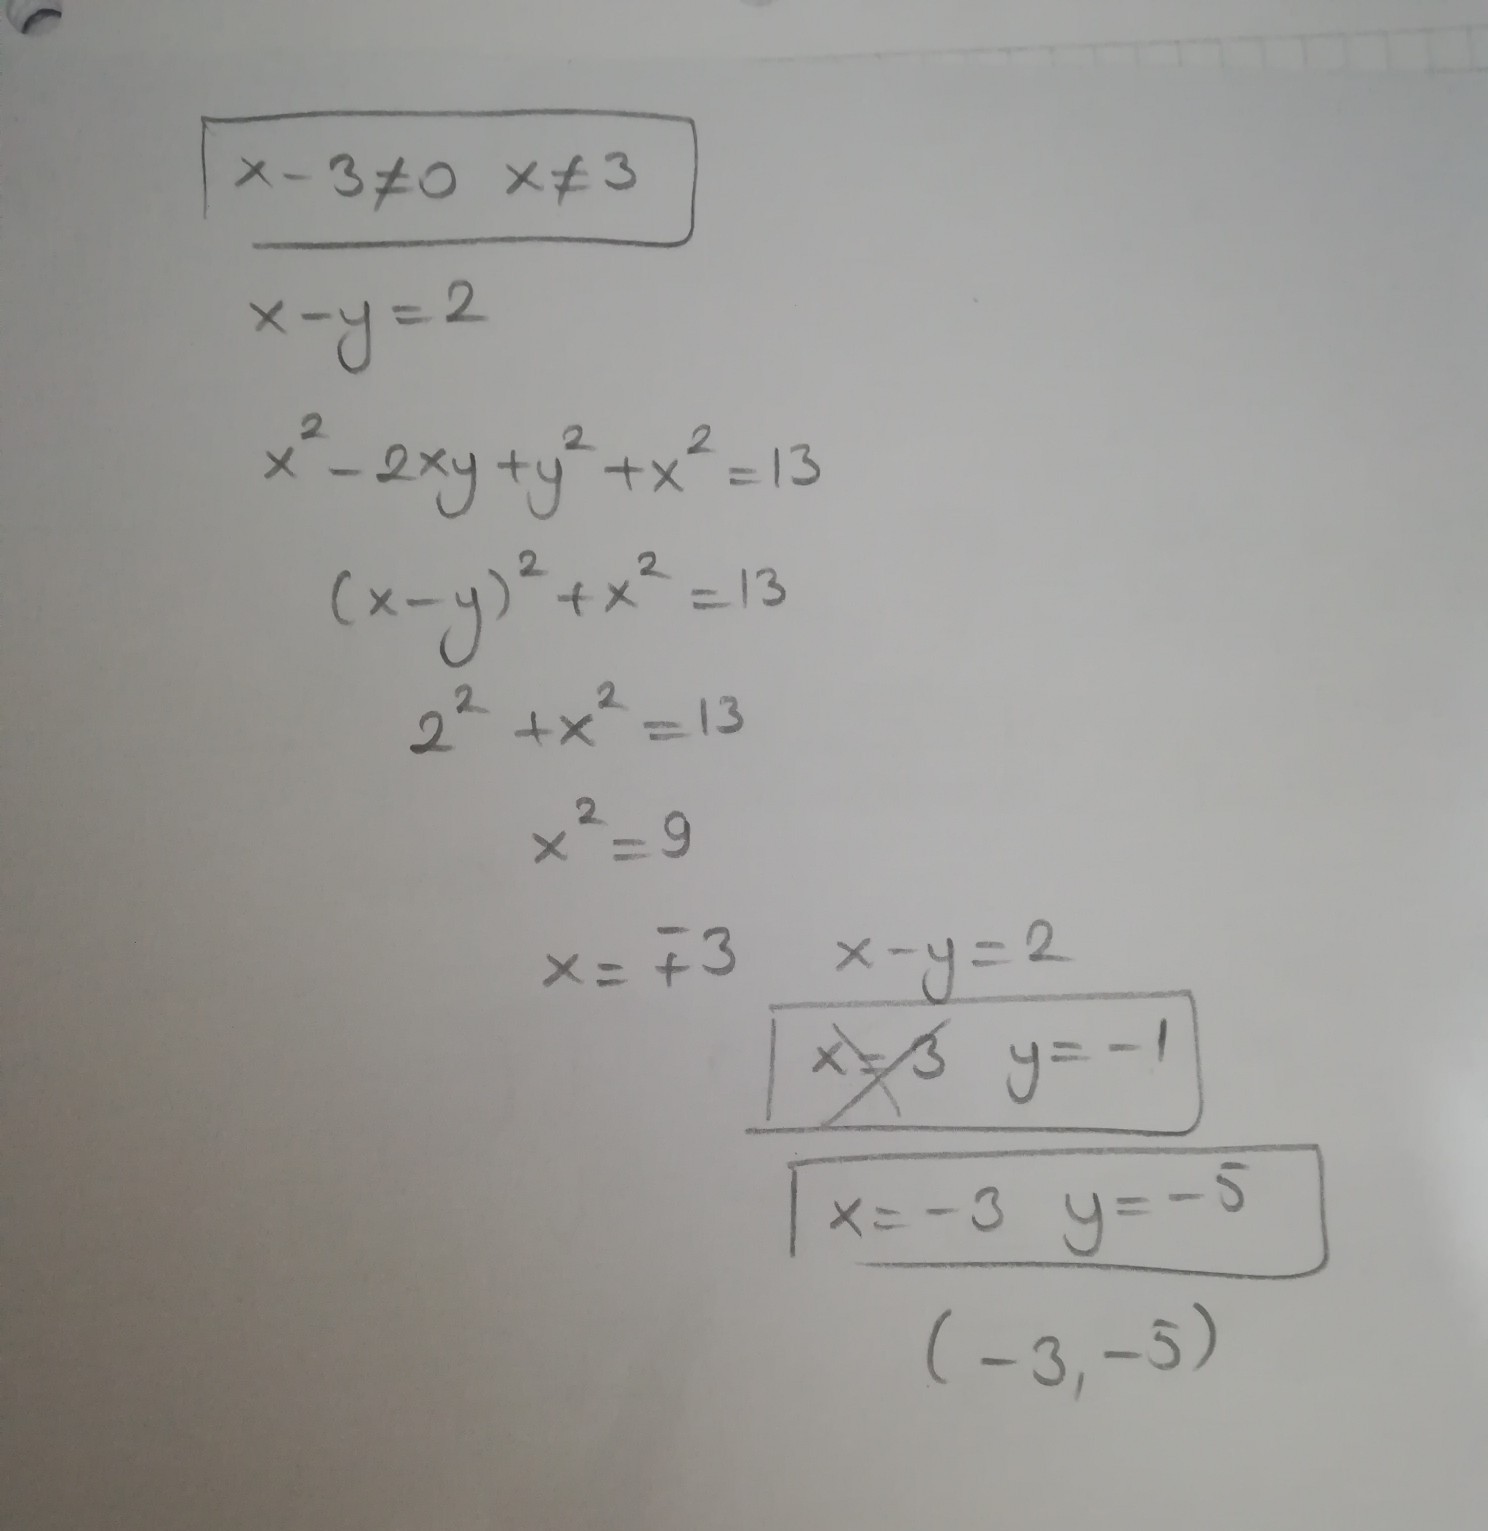 x-3≠0 x≠3
x-y=2
x²-2xy+y²+x²=13
(x-y)²+x²=13
2²+x²=13
x²=9
x=∓3 x-y=2
x=3 y=-1
x=-3 y=-5
(-3,-5)